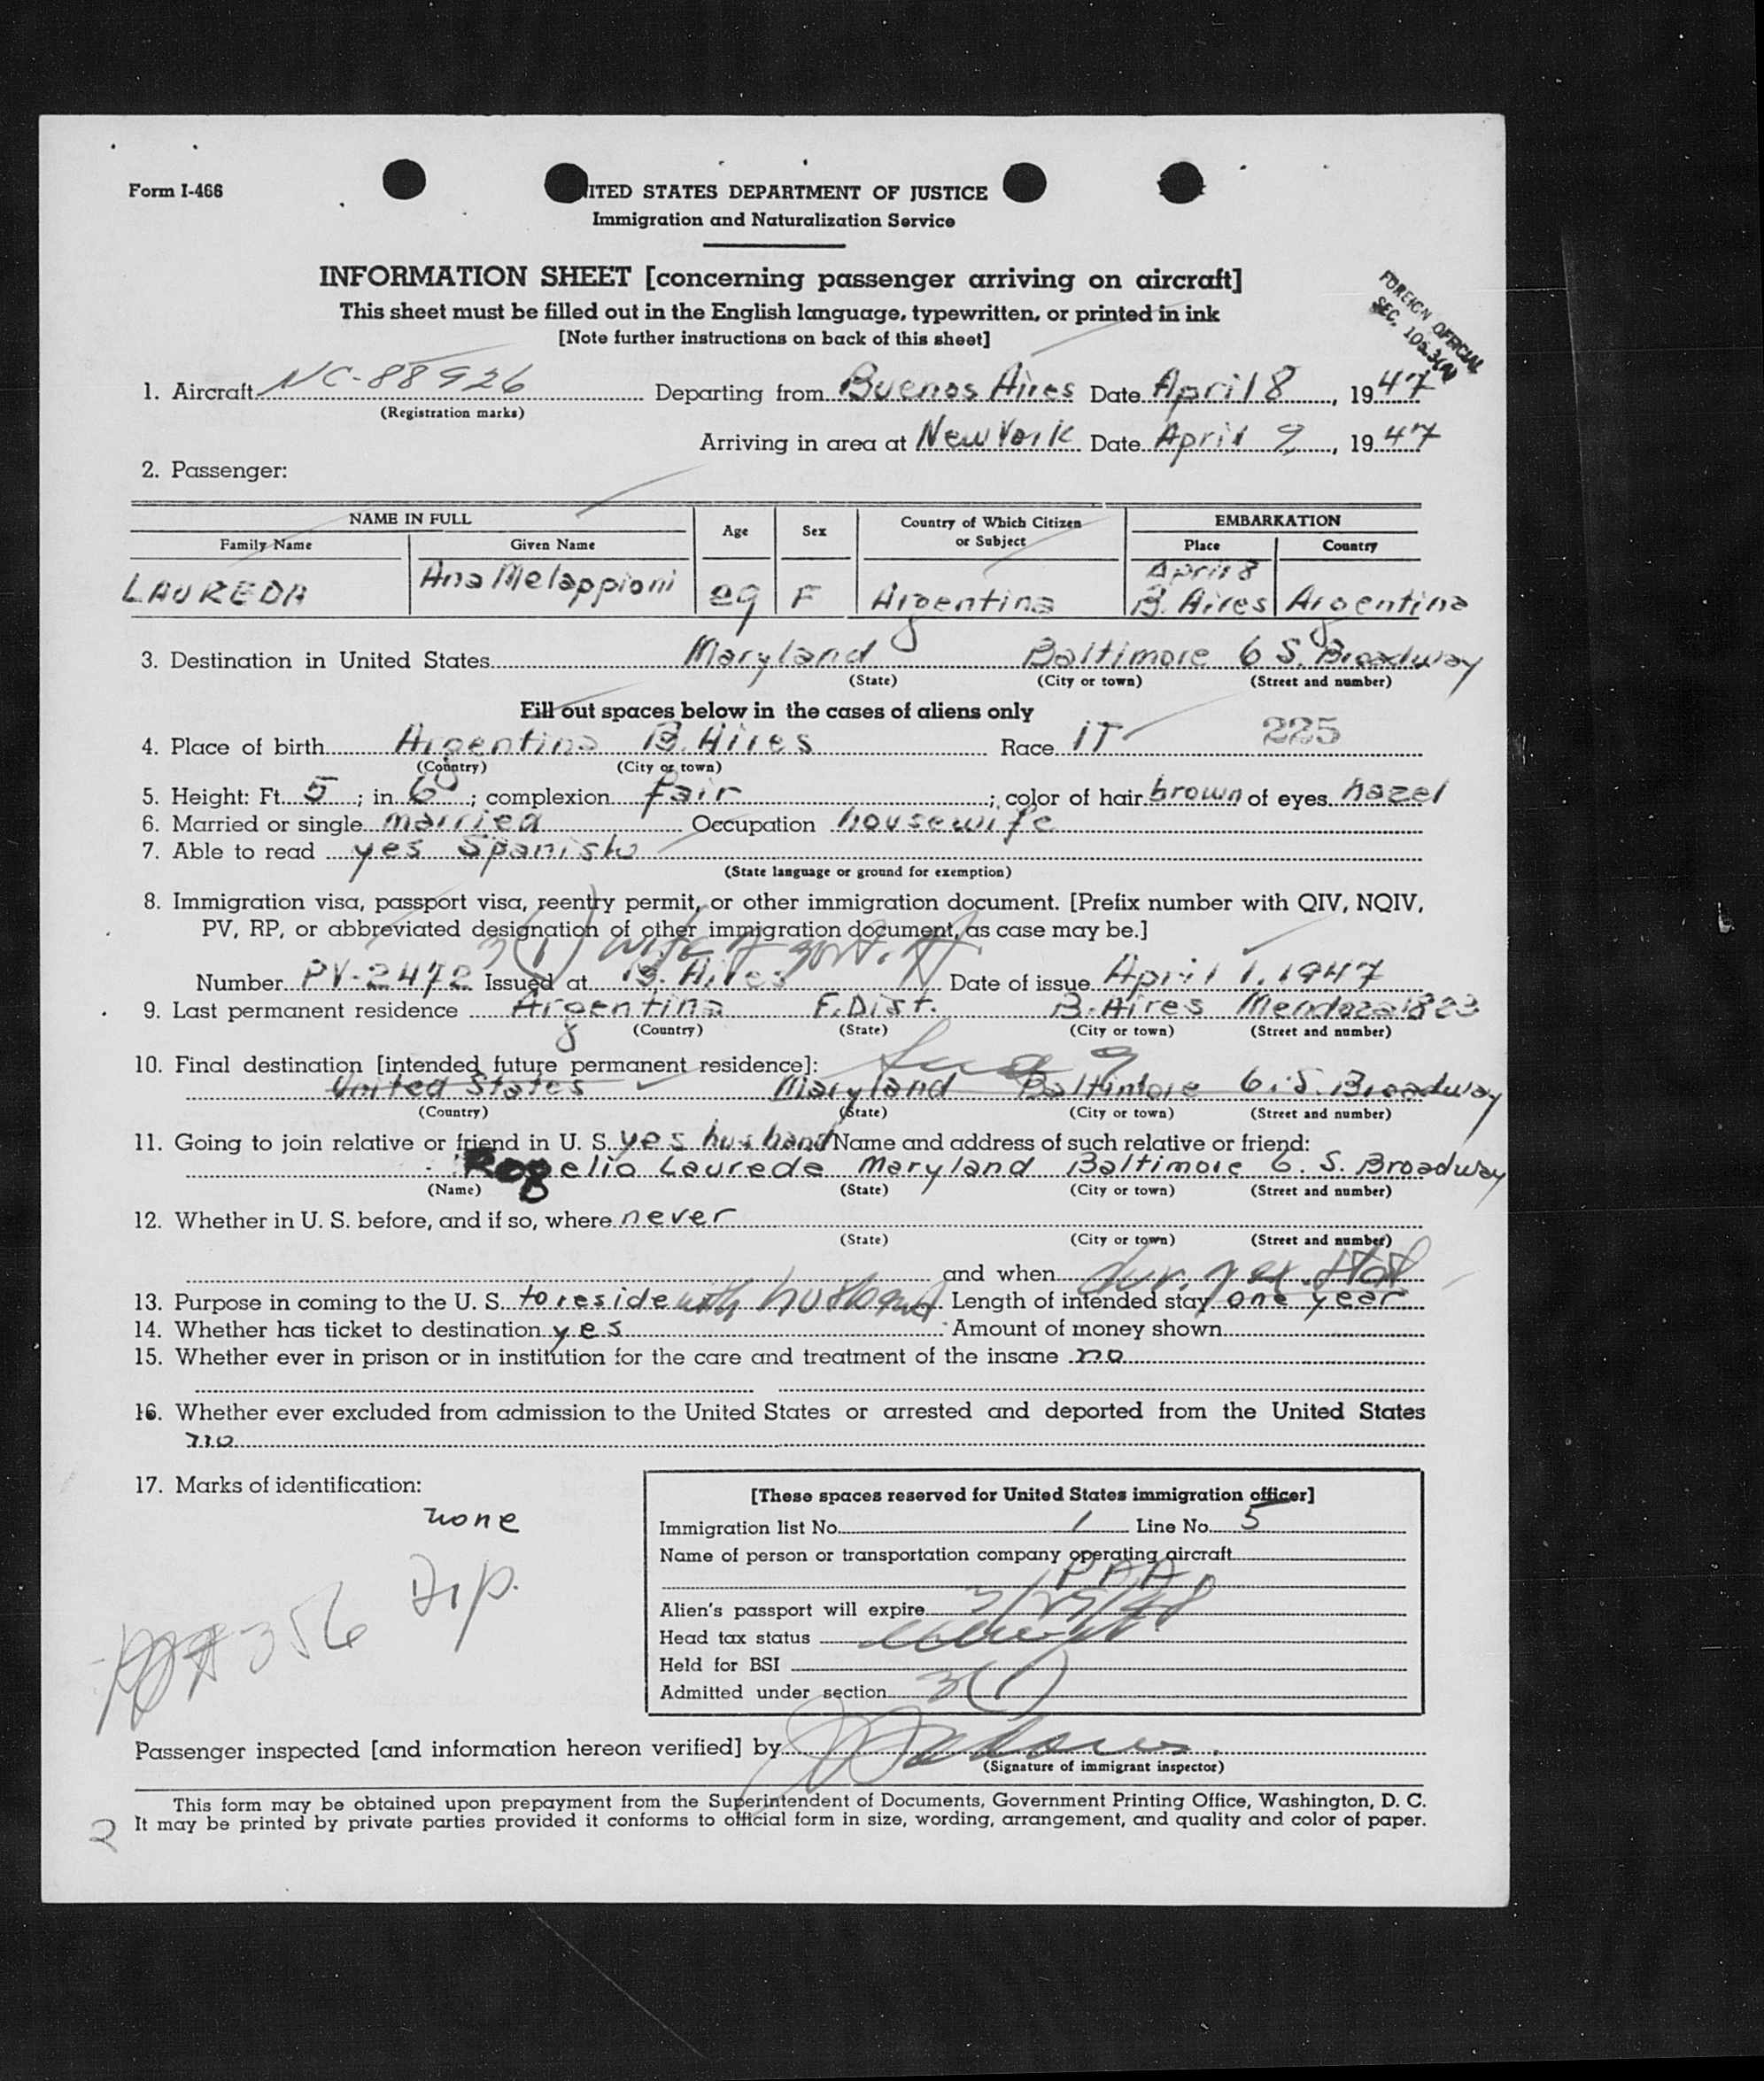 Form I-466
UNITED STATES DEPARTMENT OF JUSTICE
Immigration and Naturalization Service
INFORMATION SHEET [concerning passenger arriving on aircraft]
This sheet must be filled out in the English language, typewritten, or printed in ink
[Note further instructions on back of this sheet]
FOREIGN OFFICIAL
SEC. 105.3(A)
1. Aircraft NC-88926 Departing from Buenos Aires Date April 8, 1947
(Registration marks)
Arriving in area at New York Date April 9, 1947
2. Passenger:
NAME IN FULL Age Sex Country of Which Citizen or Subject EMBARKATION
Family Name Given Name Place Country
April 8
LAUREDA Ana Melappioni 29 F Argentina B. Aires Argentina
3. Destination in United States Maryland Baltimore 6 S. Broadway
(State) (City or town) (Street and number)
Fill out spaces below in the cases of aliens only
4. Place of birth Argentina B. Aires Race IT 225
(Country) (City or town)
5. Height: Ft. 5; in. 6; complexion fair; color of hair brown of eyes hazel
6. Married or single married Occupation housewife
7. Able to read yes Spanish
(State language or ground for exemption)
8. Immigration visa, passport visa, reentry permit, or other immigration document. [Prefix number with QIV, NQIV,
PV, RP, or abbreviated designation of other immigration document, as case may be.]
3(1) wife of govt. off
Number PV-2472 Issued at B. Aires Date of issue April 1, 1947
9. Last permanent residence Argentina F. Dist. B. Aires Mendoza 1823
(Country) (State) (City or town) (Street and number)
10. Final destination [intended future permanent residence]:
United States Maryland Baltimore 6. S. Broadway
(Country) (State) (City or town) (Street and number)
11. Going to join relative or friend in U. S. yes husband Name and address of such relative or friend:
Rogelio Laureda Maryland Baltimore 6. S. Broadway
(Name) (State) (City or town) (Street and number)
12. Whether in U. S. before, and if so, where never
(State) (City or town) (Street and number)
and when dur.
13. Purpose in coming to the U. S. to reside with husband Length of intended stay one year
14. Whether has ticket to destination yes Amount of money shown
15. Whether ever in prison or in institution for the care and treatment of the insane no
16. Whether ever excluded from admission to the United States or arrested and deported from the United States
no
17. Marks of identification:
none
Dip.
356
[These spaces reserved for United States immigration officer]
Immigration list No. 1 Line No. 5
Name of person or transportation company operating aircraft
PAA
Alien's passport will expire 3/25/48
Head tax status
Held for BSI
Admitted under section 3(1)
Passenger inspected [and information hereon verified] by
(Signature of immigrant inspector)
This form may be obtained upon prepayment from the Superintendent of Documents, Government Printing Office, Washington, D. C.
It may be printed by private parties provided it conforms to official form in size, wording, arrangement, and quality and color of paper.
2